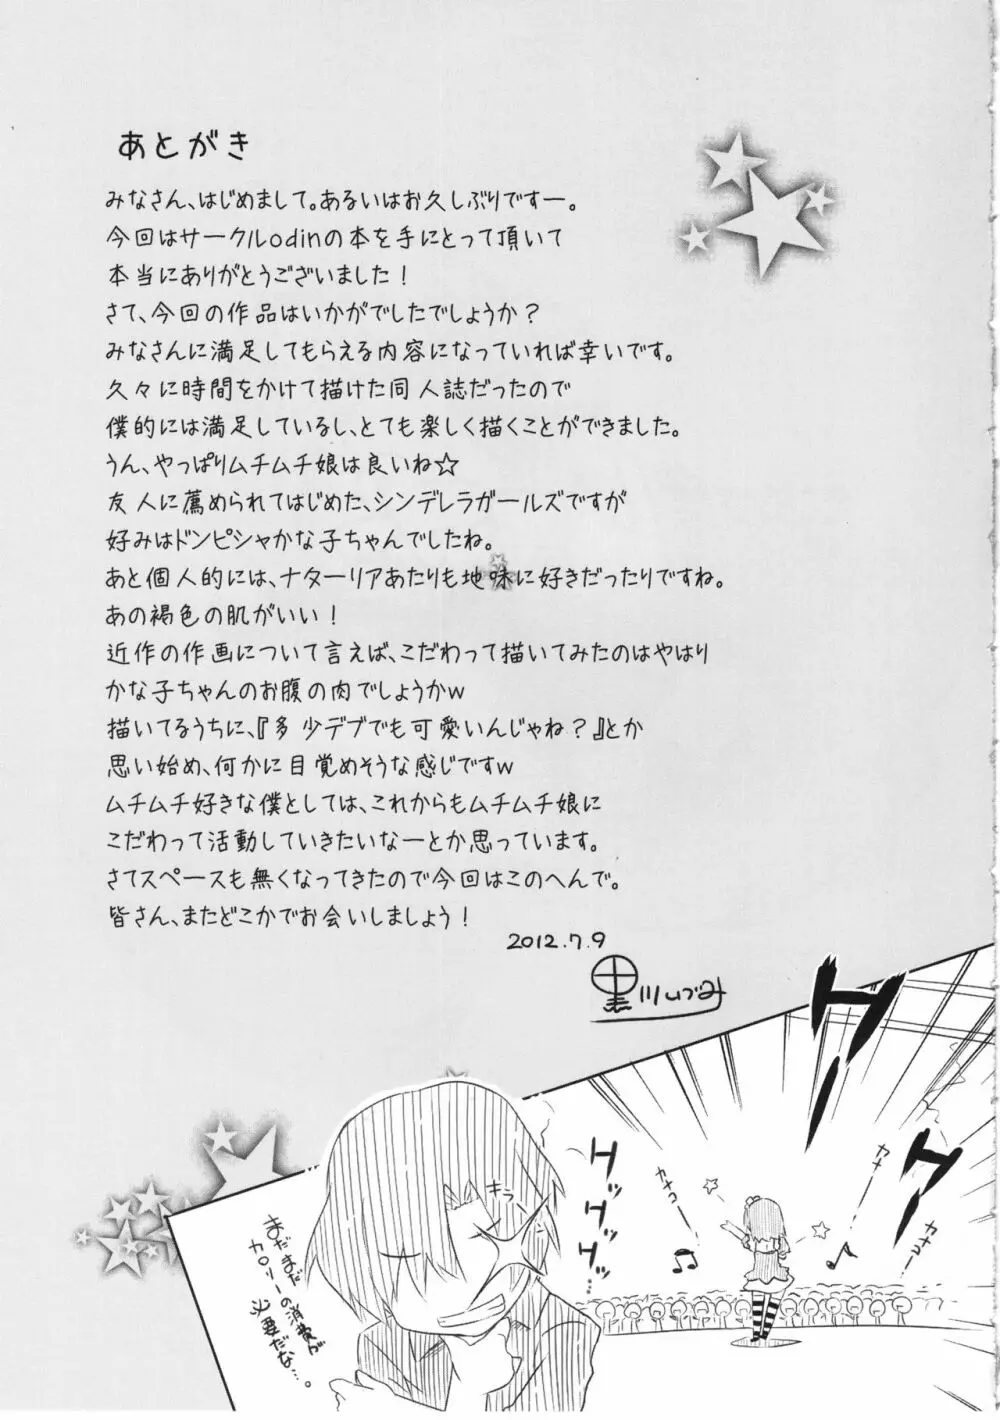 あとがき
みなさん、はじめまして。あるいはお久しぶりですー。
今回はサークルodinの本を手にとって頂いて
本当にありがとうございました！
さて、今回の作品はいかがでしたでしょうか？
みなさんに満足してもらえる内容になっていれば幸いです。
久々に時間をかけて描けた同人誌だったので
僕的には満足しているし、とても楽しく描くことができました。
うん、やっぱりムチムチ娘は良いね☆
友人に薦められてはじめた、シンデレラガールズですが
好みはドンピシャかな子ちゃんでしたね。
あと個人的には、ナターリアあたりも地味に好きだったりですね。
あの褐色の肌がいい！
近作の作画について言えば、こだわって描いてみたのはやはり
かな子ちゃんのお腹の肉でしょうかw
描いてるうちに、『多少デブでも可愛いんじゃね？』とか
思い始め、何かに目覚めそうな感じですw
ムチムチ好きな僕としては、これからもムチムチ娘に
こだわって活動していきたいなーとか思っています。
さてスペースも無くなってきたので今回はこのへんで。
皆さん、またどこかでお会いしましょう！
2012.7.9
黒川いづみ
ワー
ワー
カナコー
カナー
カナコー
ヒソヒソ
ヒソヒソ
キラッ
まだまだ
カロリーの消費が
必要だな…。